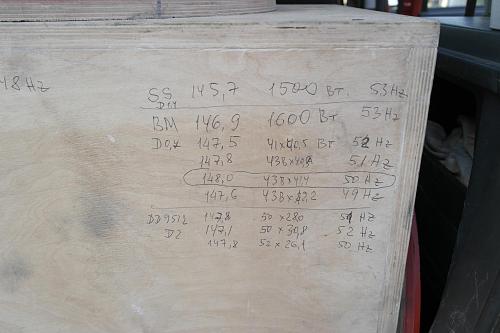 48Hz
SS 145,7 1500 Вт. 53Hz
D1,1
BM 146,9 1600 Вт 53Hz
D0,4 147,5 41x40,5 Вт 52 Hz
147,8 43Bx40,8 51 Hz
148,0 43Bx41,4 50 Hz
147,6 43Bx42,2 49 Hz
DD9512 147,8 50x28,0 51 Hz
D2 147,1 50x30,8 52 Hz
147,8 52x26,1 50 Hz